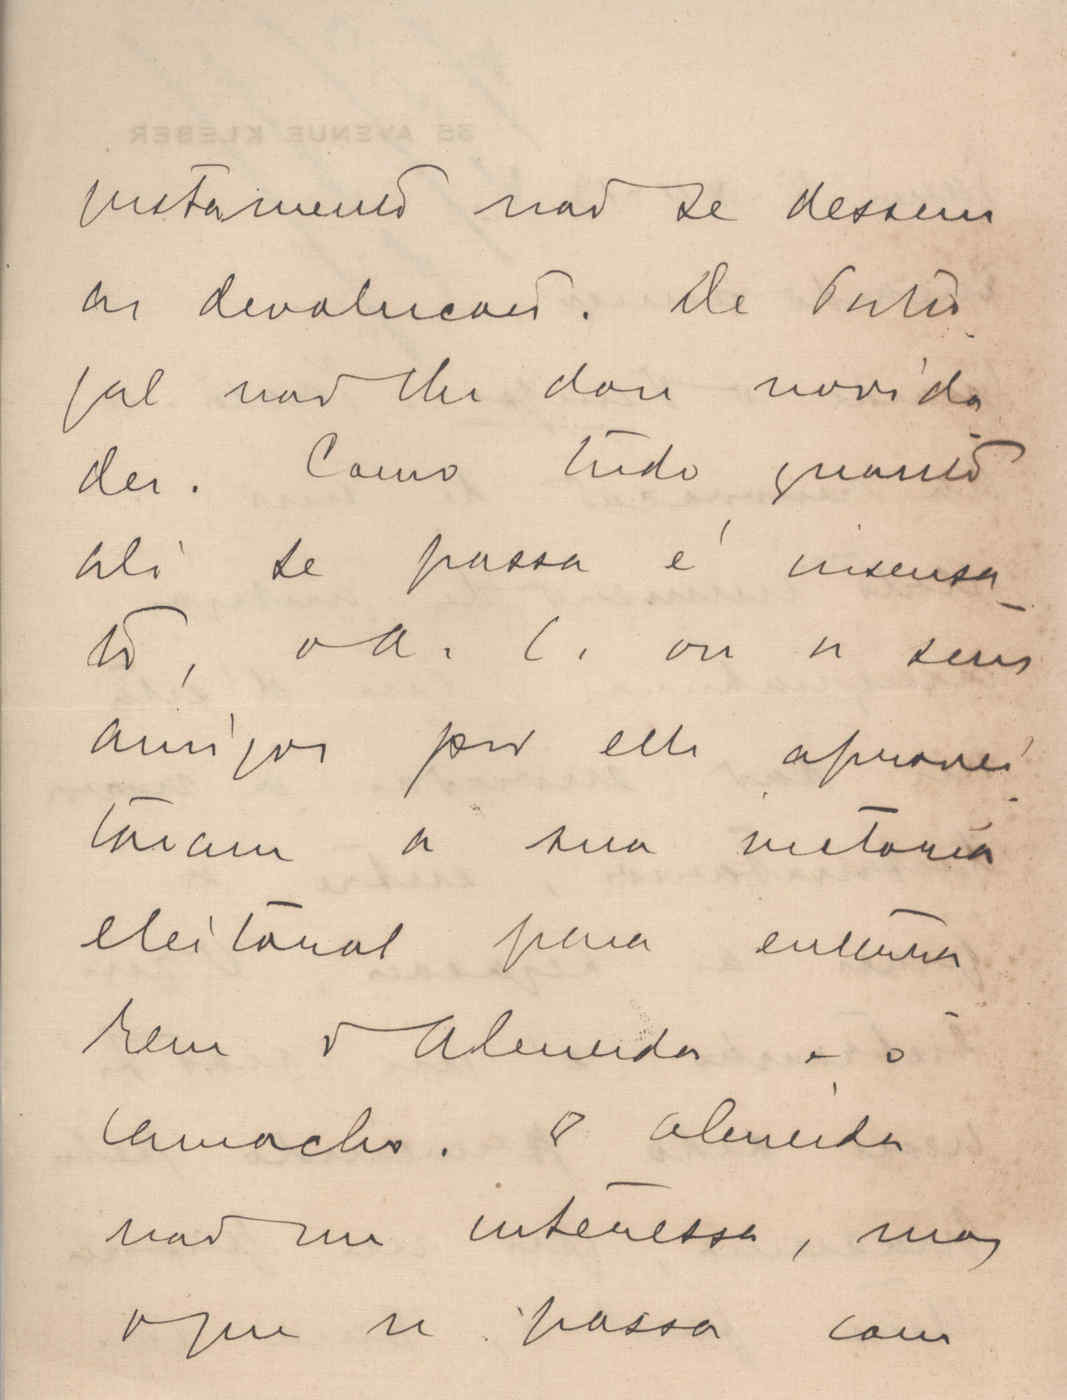 justamente não se dessem
as devoluções. De Portu-
gal não lhe dou novida-
des. Como tudo quanto
ali se passa é insensa-
to, o A. C. ou os seus
amigos por elle aprovei-
taram a sua victoria
eleitoral para
rem o Almeida e o
Camacho. O Almeida
não me interessa, mas
o que se passa com